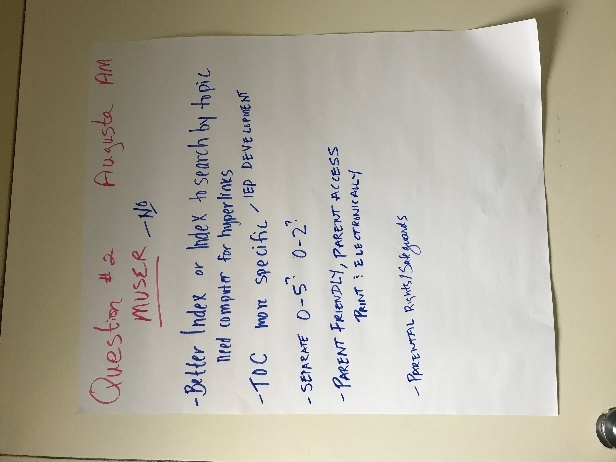 Question #2 Augusta AM
MUSER - No
- Better Index or Index to search by topic
Need computer for hyperlinks
- TOC more specific / IEP DEVELOPMENT
- SEPARATE 0-5? 0-2?
- PARENT FRIENDLY, PARENT ACCESS
PRINT & ELECTRONICALLY
- PARENTAL Rights/Safeguards